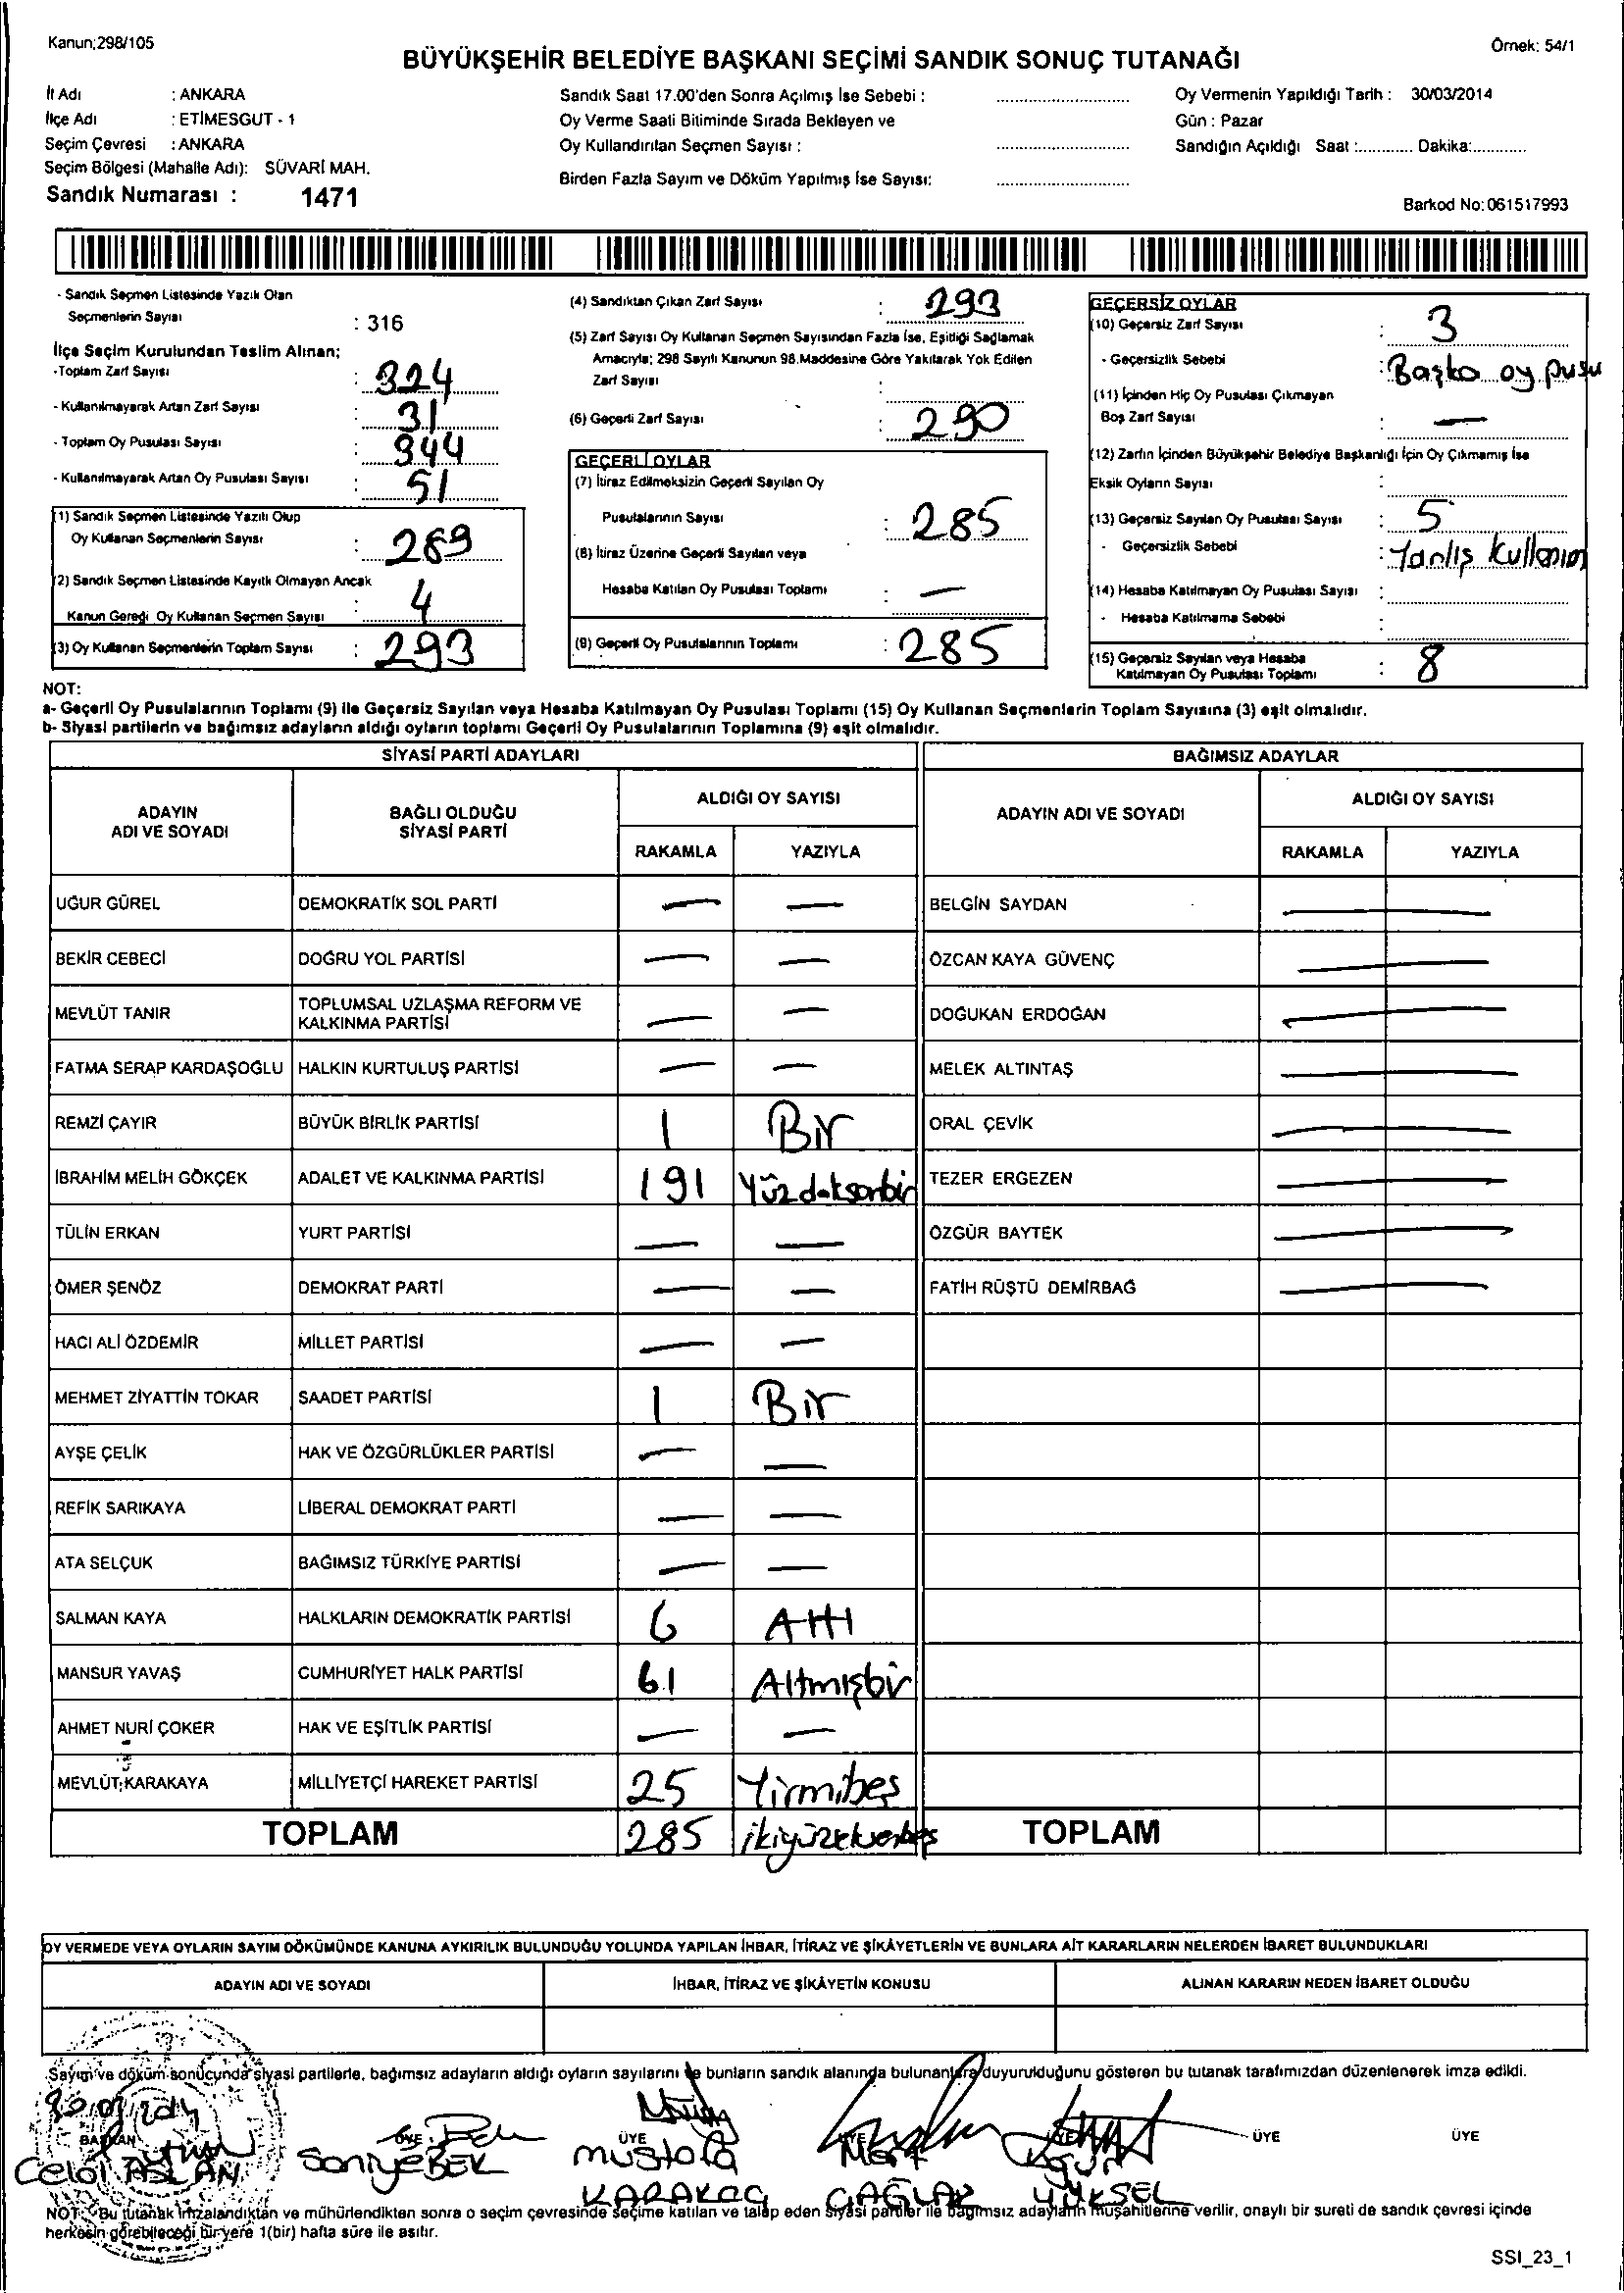 Kanun;298/105
Örnek: 54/1
BÜYÜKŞEHİR BELEDİYE BAŞKANI SEÇİMİ SANDIK SONUÇ TUTANAĞI
İl Adı : ANKARA
İlçe Adı : ETİMESGUT - 1
Seçim Çevresi : ANKARA
Seçim Bölgesi (Mahalle Adı): SÜVARİ MAH.
Sandık Numarası : 1471
Sandık Saat 17.00'den Sonra Açılmış İse Sebebi :
Oy Verme Saati Bitiminde Sırada Bekleyen ve
Oy Kullandırılan Seçmen Sayısı :
Birden Fazla Sayım ve Döküm Yapılmış İse Sayısı:
Oy Vermenin Yapıldığı Tarih : 30/03/2014
Gün : Pazar
Sandığın Açıldığı Saat :............ Dakika:............
Barkod No:061517993
- Sandık Seçmen Listesinde Yazılı Olan
Seçmenlerin Sayısı : 316
İlçe Seçim Kurulundan Teslim Alınan;
-Toplam Zarf Sayısı : 324
- Kullanılmayarak Artan Zarf Sayısı : 31
- Toplam Oy Pusulası Sayısı : 344
- Kullanılmayarak Artan Oy Pusulası Sayısı : 51
(1) Sandık Seçmen Listesinde Yazılı Olup
Oy Kullanan Seçmenlerin Sayısı : 289
(2) Sandık Seçmen Listesinde Kayıtlı Olmayan Ancak
Kanun Gereği Oy Kullanan Seçmen Sayısı : 4
(3) Oy Kullanan Seçmenlerin Toplam Sayısı : 293
(4) Sandıktan Çıkan Zarf Sayısı : 293
(5) Zarf Sayısı Oy Kullanan Seçmen Sayısından Fazla İse, Eşitliği Sağlamak
Amacıyla; 298 Sayılı Kanunun 98.Maddesine Göre Yakılarak Yok Edilen
Zarf Sayısı :
(6) Geçerli Zarf Sayısı : 290
GEÇERLİ OYLAR
(7) İtiraz Edilmeksizin Geçerli Sayılan Oy
Pusulalarının Sayısı : 285
(8) İtiraz Üzerine Geçerli Sayılan veya
Hesaba Katılan Oy Pusulası Toplamı : —
(9) Geçerli Oy Pusulalarının Toplamı : 285
GEÇERSİZ OYLAR
(10) Geçersiz Zarf Sayısı : 3
- Geçersizlik Sebebi : Başka oy pusu
(11) İçinden Hiç Oy Pusulası Çıkmayan
Boş Zarf Sayısı : —
(12) Zarfın İçinden Büyükşehir Belediye Başkanlığı İçin Oy Çıkmamış İse
Eksik Oyların Sayısı :
(13) Geçersiz Sayılan Oy Pusulası Sayısı : 5
- Geçersizlik Sebebi : Yanlış kullanım
(14) Hesaba Katılmayan Oy Pusulası Sayısı :
- Hesaba Katılmama Sebebi :
(15) Geçersiz Sayılan veya Hesaba
Katılmayan Oy Pusulası Toplamı : 8
NOT:
a- Geçerli Oy Pusulalarının Toplamı (9) ile Geçersiz Sayılan veya Hesaba Katılmayan Oy Pusulası Toplamı (15) Oy Kullanan Seçmenlerin Toplam Sayısına (3) eşit olmalıdır.
b- Siyasi partilerin ve bağımsız adayların aldığı oyların toplamı Geçerli Oy Pusulalarının Toplamına (9) eşit olmalıdır.
SİYASİ PARTİ ADAYLARI
BAĞIMSIZ ADAYLAR
ADAYIN ADI VE SOYADI
BAĞLI OLDUĞU SİYASİ PARTİ
ALDIĞI OY SAYISI
RAKAMLA YAZIYLA
ADAYIN ADI VE SOYADI
ALDIĞI OY SAYISI
RAKAMLA YAZIYLA
UĞUR GÜREL DEMOKRATİK SOL PARTİ — — BELGİN SAYDAN —
BEKİR CEBECİ DOĞRU YOL PARTİSİ — — ÖZCAN KAYA GÜVENÇ —
MEVLÜT TANIR TOPLUMSAL UZLAŞMA REFORM VE KALKINMA PARTİSİ — — DOĞUKAN ERDOĞAN —
FATMA SERAP KARDAŞOĞLU HALKIN KURTULUŞ PARTİSİ — — MELEK ALTINTAŞ —
REMZİ ÇAYIR BÜYÜK BİRLİK PARTİSİ 1 Bir ORAL ÇEVİK —
İBRAHİM MELİH GÖKÇEK ADALET VE KALKINMA PARTİSİ 191 Yüzdoksanbir TEZER ERGEZEN —
TÜLİN ERKAN YURT PARTİSİ — — ÖZGÜR BAYTEK —
ÖMER ŞENÖZ DEMOKRAT PARTİ — — FATİH RÜŞTÜ DEMİRBAĞ —
HACI ALİ ÖZDEMİR MİLLET PARTİSİ — —
MEHMET ZİYATTİN TOKAR SAADET PARTİSİ 1 Bir
AYŞE ÇELİK HAK VE ÖZGÜRLÜKLER PARTİSİ — —
REFİK SARIKAYA LİBERAL DEMOKRAT PARTİ — —
ATA SELÇUK BAĞIMSIZ TÜRKİYE PARTİSİ — —
SALMAN KAYA HALKLARIN DEMOKRATİK PARTİSİ 6 Altı
MANSUR YAVAŞ CUMHURİYET HALK PARTİSİ 61 Altmışbir
AHMET NURİ ÇOKER HAK VE EŞİTLİK PARTİSİ — —
MEVLÜT KARAKAYA MİLLİYETÇİ HAREKET PARTİSİ 25 Yirmibeş
TOPLAM 285 ikiyüzseksenbeş TOPLAM
OY VERMEDE VEYA OYLARIN SAYIM DÖKÜMÜNDE KANUNA AYKIRILIK BULUNDUĞU YOLUNDA YAPILAN İHBAR, İTİRAZ VE ŞİKÂYETLERİN VE BUNLARA AİT KARARLARIN NELERDEN İBARET BULUNDUKLARI
ADAYIN ADI VE SOYADI İHBAR, İTİRAZ VE ŞİKÂYETİN KONUSU ALINAN KARARIN NEDEN İBARET OLDUĞU
Sayım ve döküm sonucunda siyasi partilerle, bağımsız adayların aldığı oyların sayılarını ve bunların sandık alanında bulunanlara duyurulduğunu gösteren bu tutanak tarafımızdan düzenlenerek imza edildi.
30/03/2014
BAŞKAN ÜYE ÜYE ÜYE ÜYE ÜYE ÜYE
Celal ASLAN Saniye BEK Mustafa KARAKOÇ Mert ÇAĞLAR YÜKSEL
NOT: Bu tutanak imzalandıktan ve mühürlendikten sonra o seçim çevresinde seçime katılan ve talep eden siyasi partiler ile bağımsız adayların müşahitlerine verilir, onaylı bir sureti de sandık çevresi içinde
herkesin görebileceği bir yere 1(bir) hafta süre ile asılır.
SSI_23_1